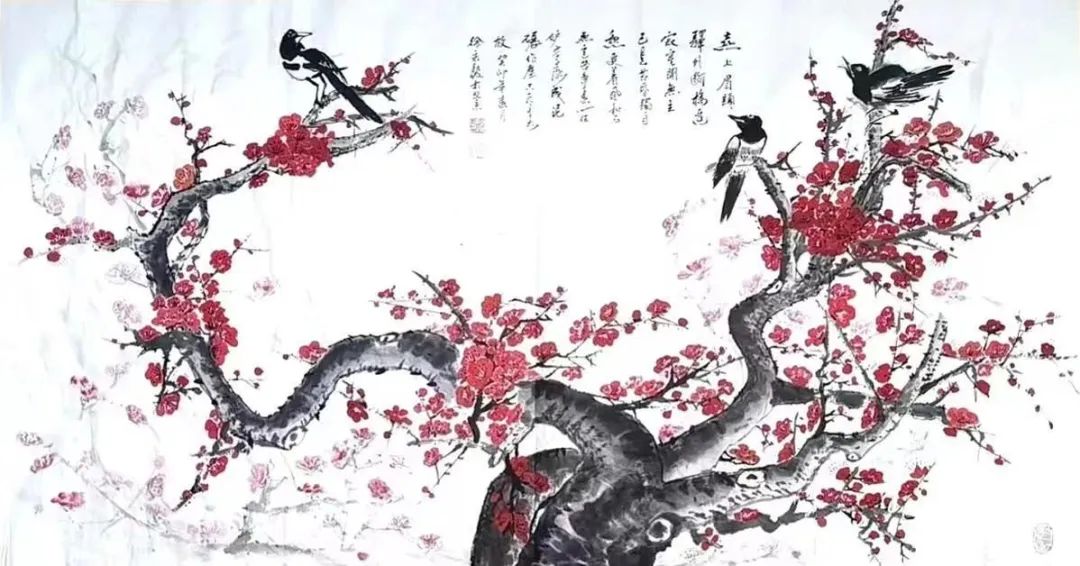 喜上眉頭
驛外斷橋邊
寂寞開無主
已是黃昏獨自
愁更着風和雨
無意苦爭春一任
零落成泥
碾作塵只有香如
故 癸卯年